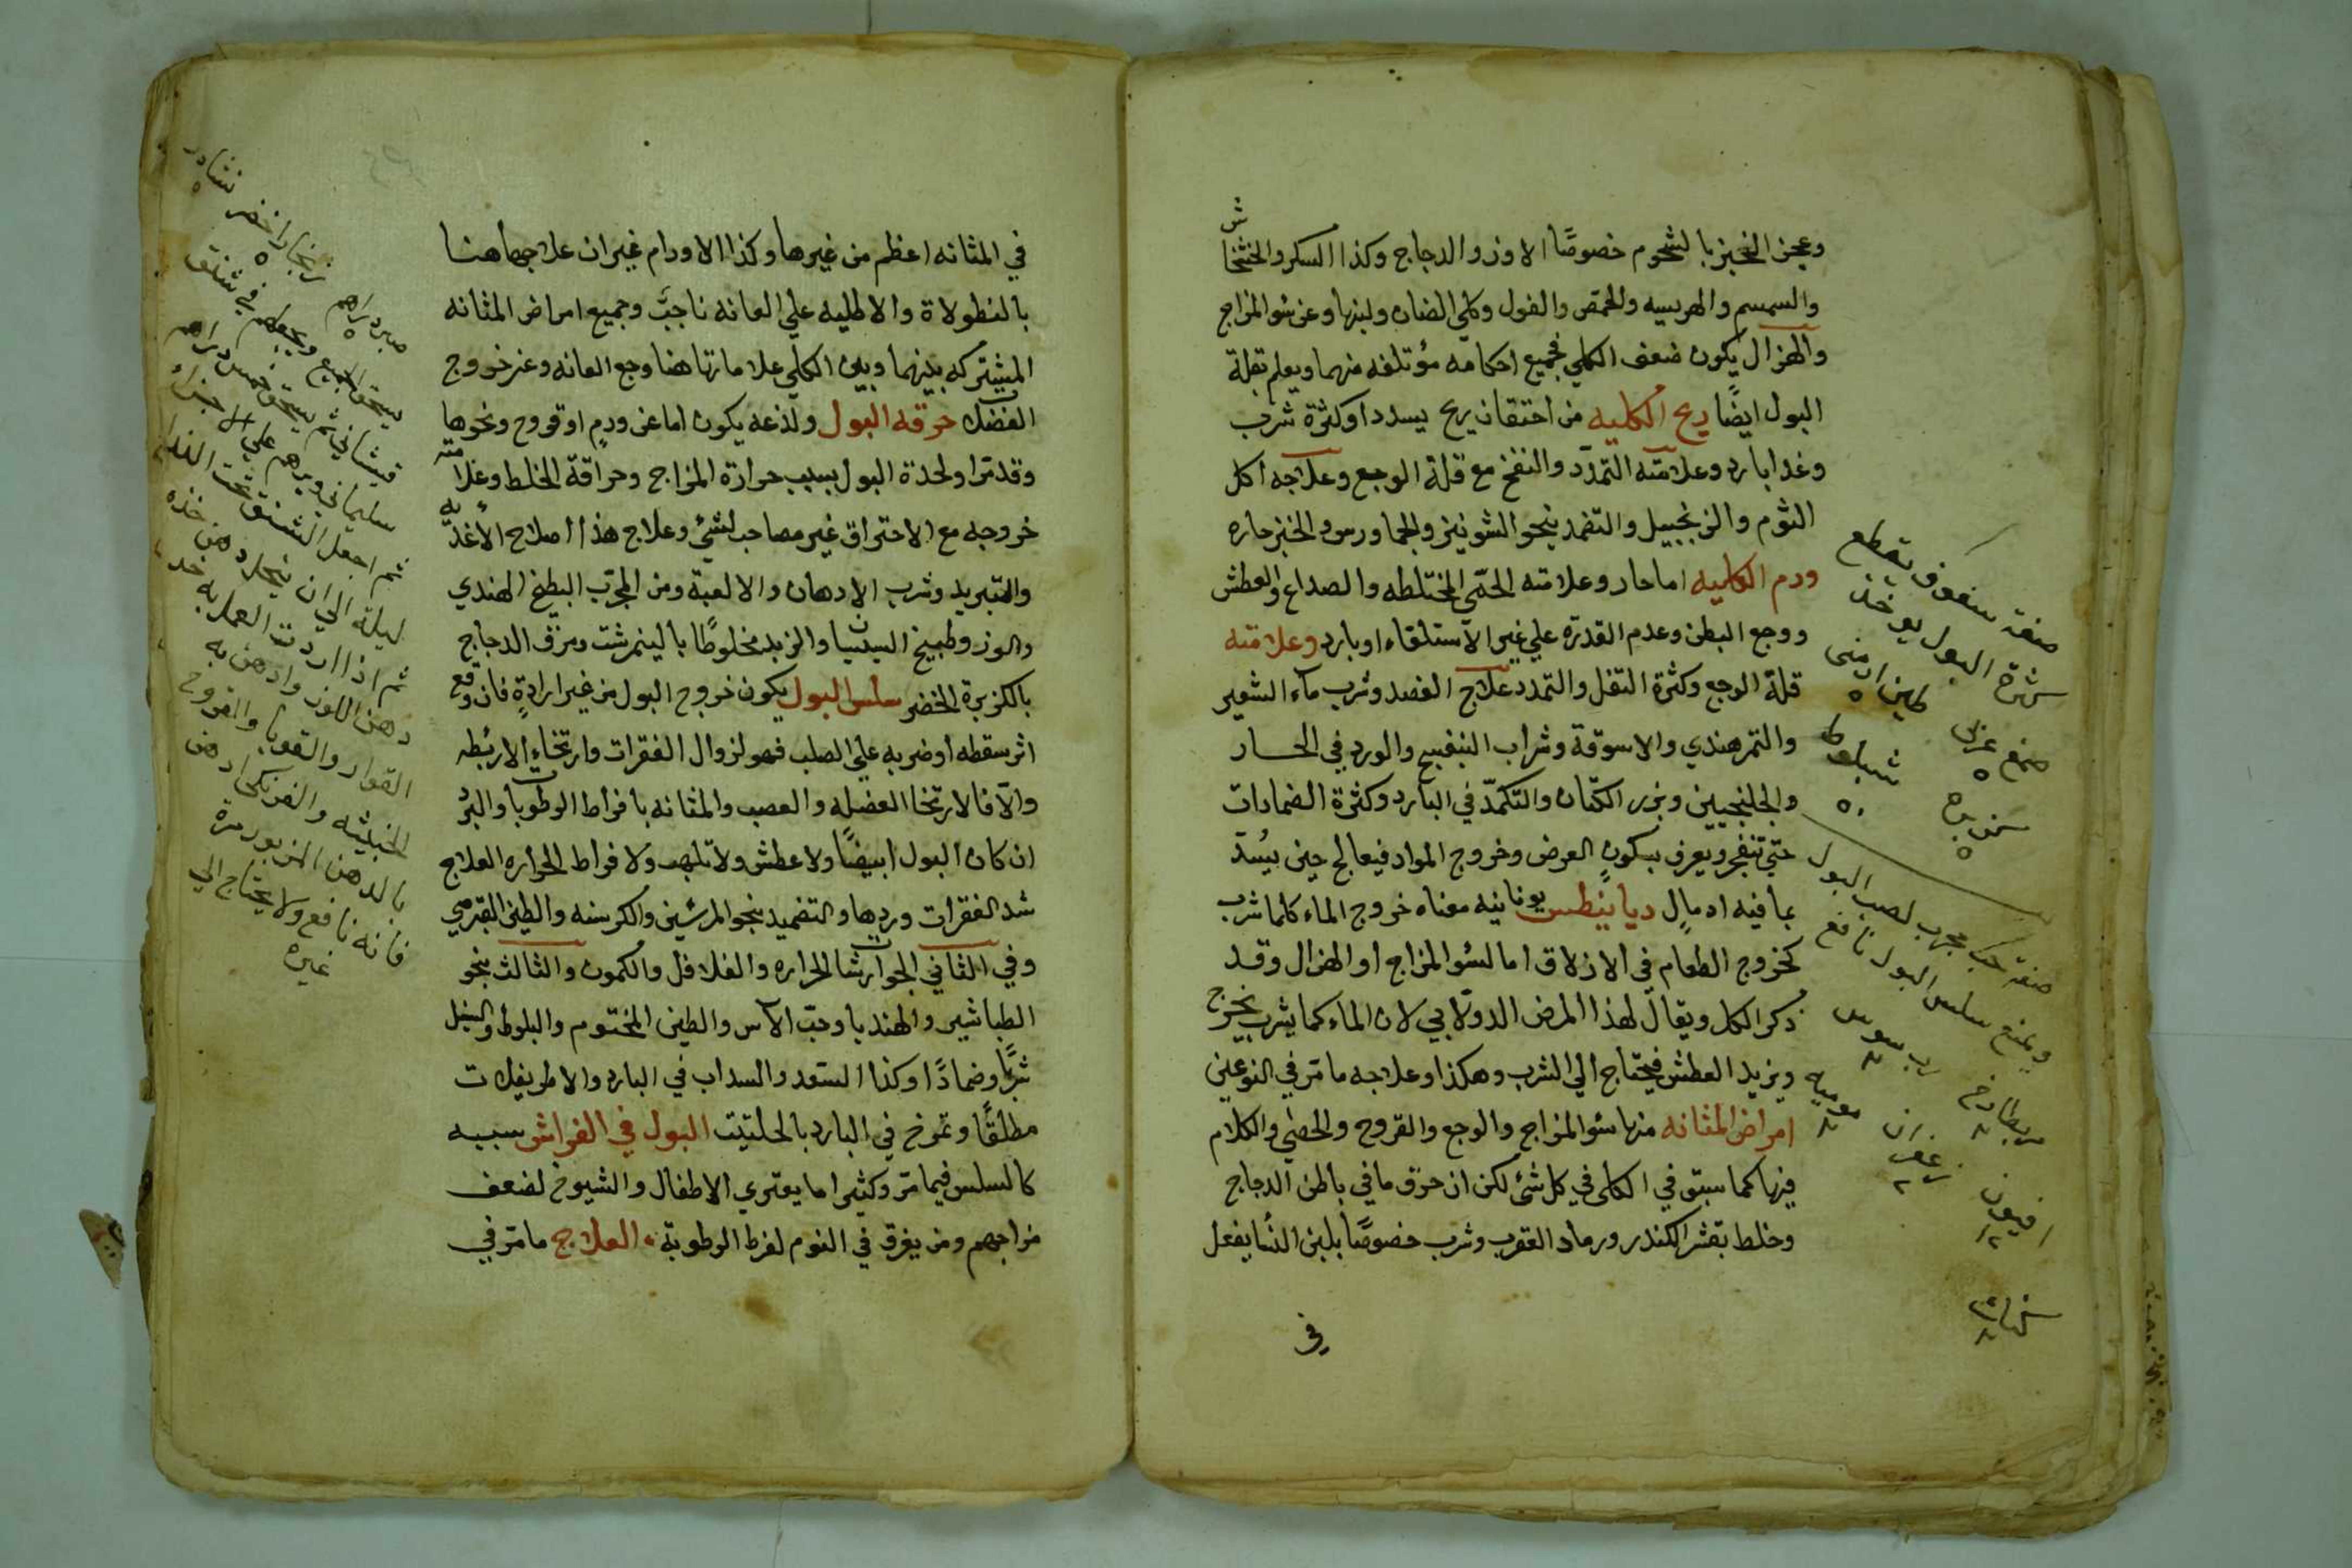 وعجن الخبز بالشحوم خصوصًا الاوز والدجاج وكذا السكر والخشخاش
والسمسم والهريسه والحمص والفول وكلي الضان ولبنها وعن سوالمزاج
والهزال يكون ضعف الكلي فجميع احكامه مؤتلفه منهما ويعلم بقلة
البول ايضًا ريح الكليه من احتقان ريح بسدد اوكثرة شرب
وغدا بارد وعلامته التمدّد والنفخ مع قلة الوجع وعلاجه اكل
الثوم والزنجبيل والتضمد بنحو الشونيز والجاورس والخبز حاره
ورم الكليه اما حار وعلامته الحمّي المختلطه والصداع والعطش
ووجع البطن وعدم القدرّه علي غير الاستلقاء اوبارد وعلامته
قلة الوجع وكثرة الثقل والتمدد علاج الفصد وشرب ماء الشعير
والتمرهندي والاسوقة وشراب البنفسج والورد في الحار
والجلنجبين وبزر الكتّان والتكمّد في البارد وكثرة الضمادات
حتي تنفجر ويعرف بسكون العرض وخروج المواد فيعالج حين يسُدّ
بما فيه ادمال ديابنطس يونانيه معناه خروج الماء كلما شرب
كخروج الطعام في الازلاق اما لسؤ المزاج او الهزال وقد
ذكر الكل ويقال لهذا المرض الدولابي لان الماء كما يشرب يخرج
ويزيد العطش فيحتاج الي الشرب وهكذا وعلاجه ما مرّ في النوعين
امراض المثانه منها سؤالمزاج والوجع والقروح والحصي والكلام
فيها كما سبق في الكلى في كل شئ لكن ان حرّق ما في باطن الدجاج
وخلط بقشر الكندر ورماد العقرب وشرب خصوصًا بلبن النسا يفعل
في
صفة سفوف يقطع
شرة البول يوخذ
طين ارمنى ٥
صمغ عربى ٥
شبلوط ٥٠
صفة حب مجرب لصب البول
ويمنع سلس البول نافع
رب سوس
زعفران
افيون
في المثانه اعظم من غيرها وكذا الاورام غيران علاجها هنا
بالنطولاة والاطليه علي العانه ناجبّ وجميع امراض المثانه
المشتركه بينهما وبين الكلي علاماتها هنا وجع العانه وعند خروج
الفضلات حرقه البول ولذعه يكون اما عن ورمٍ اوقروح ونحوها
وقد مرّ اولحدة البول بسبب حرارة المزاج وحراقة الخلط وعلامته
خروجه مع الاحتراق غير مصاحب لشئ وعلاج هذا اصلاح الاغذيه
والتبريد وشرب الادهان والالعبة ومن المجرّب البطيخ الهندي
والوز وطبيخ السبستان والزبد مخلوطًا بالينمرشت ومرق الدجاج
بالكزبرة الخضر سلس البول يكون خروج البول من غير ارادةٍ فان وقع
اثر سقطه اوضربه علي الصلب فهو لزوال الفقرات وارتخاء الاربُطه
والّا فالارتخا العضله والعصب والمثانه بافراط الرطوبات والبرد
ان كان البول ابيضًا ولا عطش ولا تلهب ولا فراط الحراره العلاج
شد الفقرات وردها والتضميد بنحو المرشين والكرسنه والطين القبرصي
وفي الثاني الجوارشات الحاره والفلافل والكمون والثالث بنحو
الطباشير والهندبا وحبّ الآس والطين المختوم والبلوط والسنبل
شربًا وضمادًا وكذا السعد والسداب في البارد والاطريفلات
مطلقًا وتمرخ في البارد بالحلتيت البول في الفراش سببه
كالسلس فيما مرّ وكثيرا ما يعتري الاطفال والشيوخ لضعف
مزاجهم ومن يغرق في النوم لفرط الرطوبة العلاج ما مرّ في
زنجار اخضر نشادر
يسحق الجميع ويجعلهم في شنتق
ثم اجعل الشنتق تحت الندا
ليلة الي ان ينحل دهن خذه
ثم اذا اردت العمل به خذ
دهن اللوز وادهن به
القوار والقوبا والقروح
الخبيثه والفرنكى ادهن
بالدهن المزبور مرة
فانه نافع ولا يحتاج الي
غيره